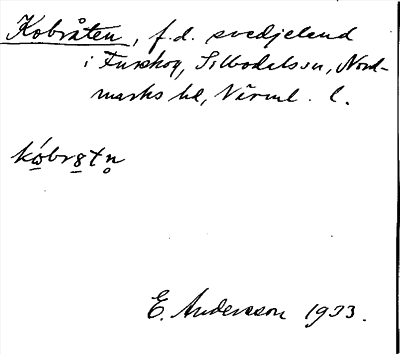 Kobråten, f.d. svedjeland
i Furskog, Silbodals sn, Nord-
marks hd, Värml. l.
kóbrätn
E. Andersson 1933.